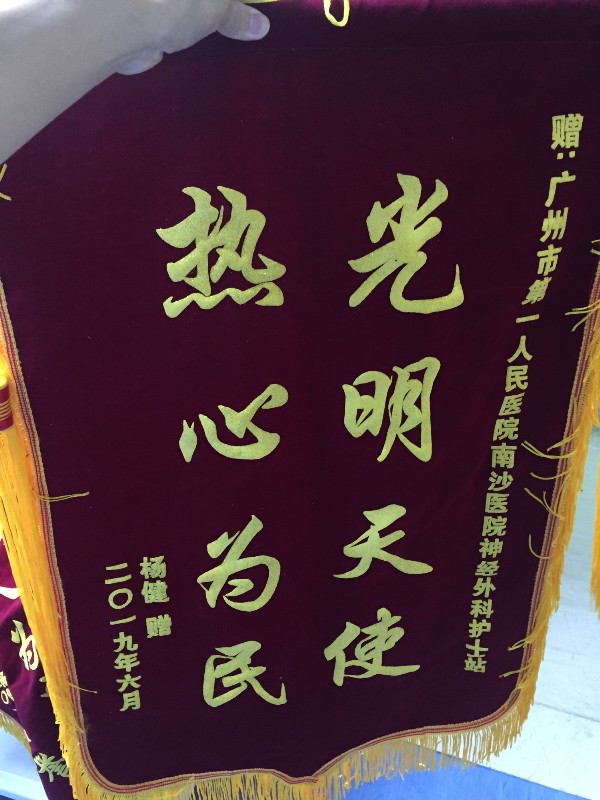 赠：广州市第一人民医院南沙医院神经外科护士站
光明天使
热心为民
杨健 赠
二〇一九年六月